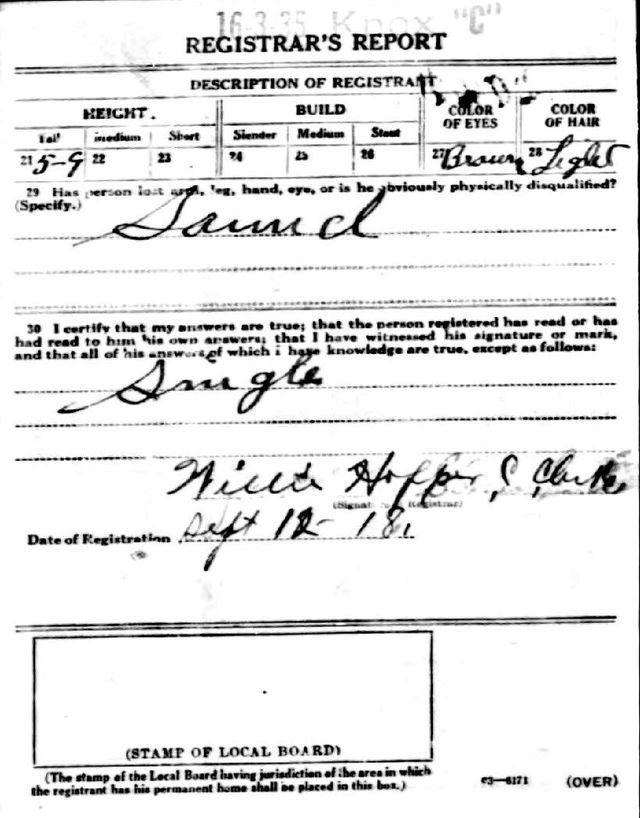 16-3-35 Knox "C"
REGISTRAR'S REPORT
DESCRIPTION OF REGISTRANT
HEIGHT. BUILD COLOR OF EYES COLOR OF HAIR
Tall medium Short Slender Medium Stout
21 5-9 22 23 24 25 26 27 Brown 28 Light
29 Has person lost arm, leg, hand, eye, or is he obviously physically disqualified?
(Specify.)
Sound
30 I certify that my answers are true; that the person registered has read or has
had read to him his own answers; that I have witnessed his signature or mark,
and that all of his answers of which i have knowledge are true, except as follows:
Single
Willie Hopper, Clerk
(Signature Registrar)
Date of Registration Sept 12-18.
(STAMP OF LOCAL BOARD)
(The stamp of the Local Board having jurisdiction of the area in which
the registrant has his permanent home shall be placed in this box.)
03-6171 (OVER)